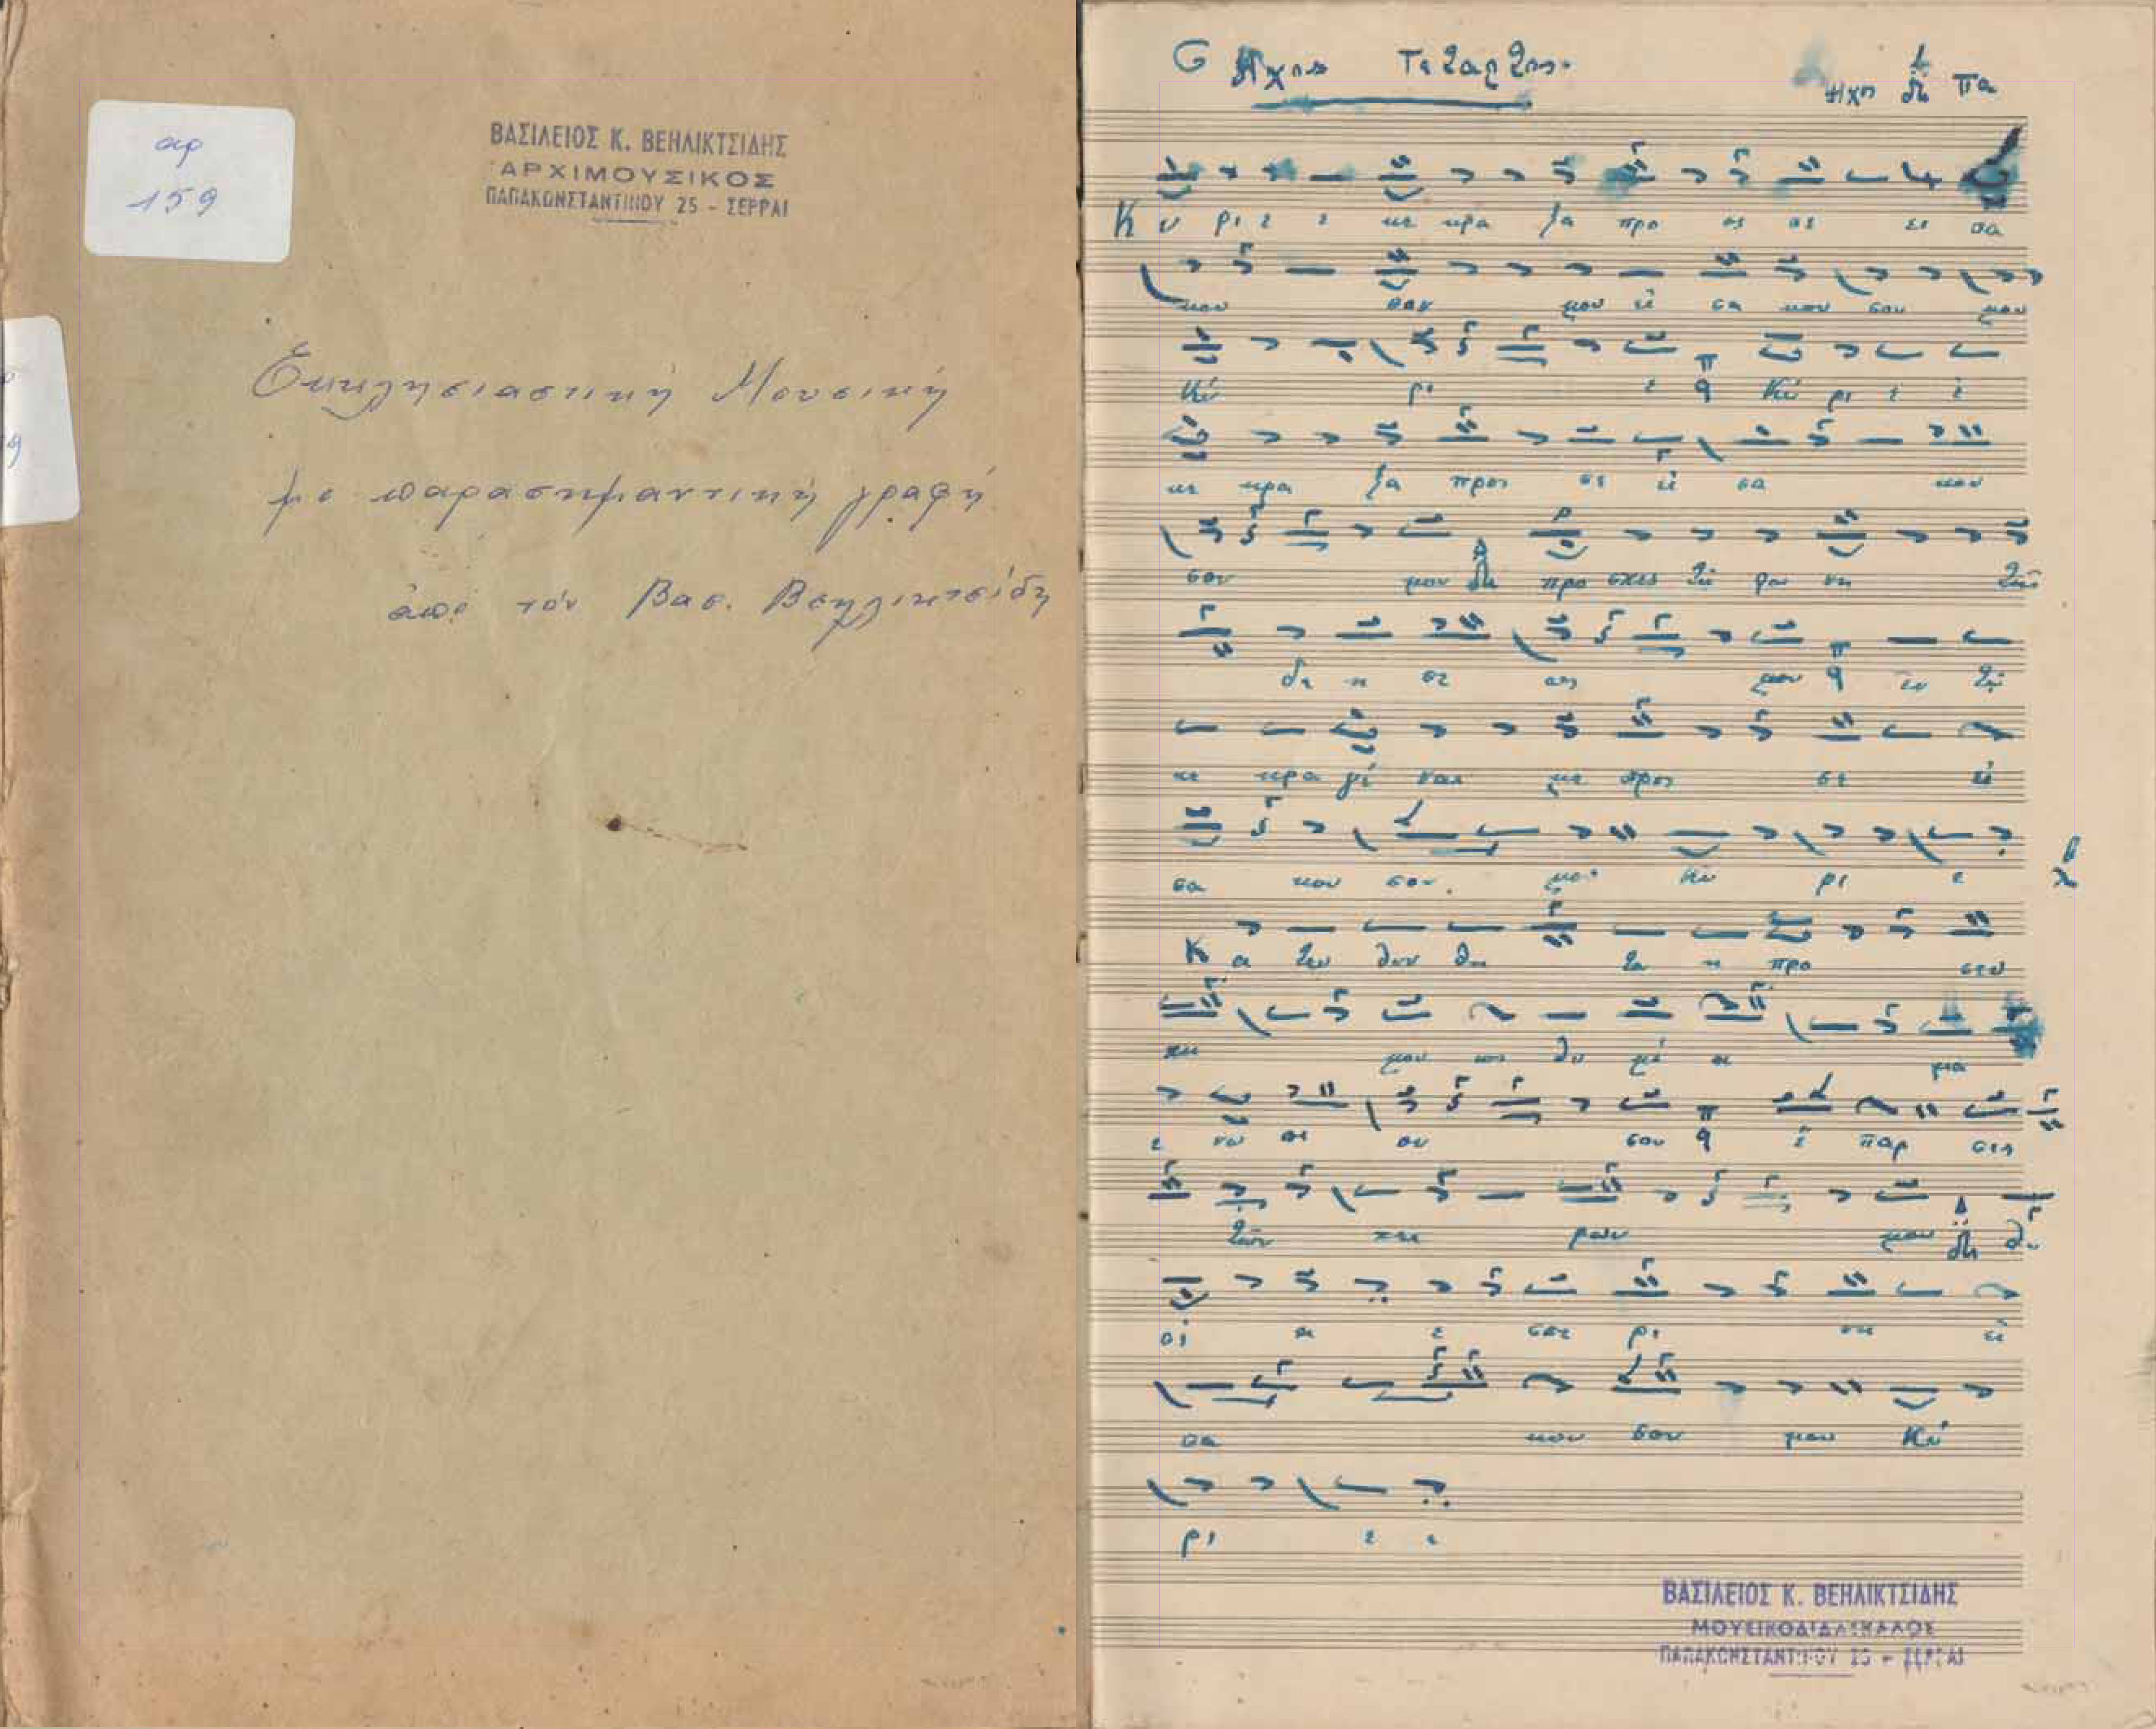 αρ
159
ΒΑΣΙΛΕΙΟΣ Κ. ΒΕΗΛΙΚΤΣΙΔΗΣ
ΑΡΧΙΜΟΥΣΙΚΟΣ
ΠΑΠΑΚΩΝΣΤΑΝΤΙΝΟΥ 25 - ΣΕΡΡΑΙ
Εκκλησιαστική Μουσική
με παρασημαντική γραφή
από τόν Βασ. Βεηλικτσίδη
Ηχος Τεταρτος.
Ηχος Πα
Κ υ ρι ε ε κε κρα ξα προ ος σε ει σα
κου σον μου εί σα κου σον μου
Κύ ρι ε Κύ ρι ε ἐ
κε κρα ξα προς σε εί σα κου
σον μου προ σχες τη φω νη της
δε η σε ως μου εν τῳ
κε κρα γέ ναι με προς σε εί
σα κου σον. μου Κύ ρι ε
Κ α τευ θυν θη τω η προ σευ
χη μου ως θυ μί α μα
ε νω πι ον σου ἔ παρ σις
των χει ρων μου θυ
σί α ε σπε ρι νη εί
σα κου σον μου Κύ
ρι ε ε
ΒΑΣΙΛΕΙΟΣ Κ. ΒΕΗΛΙΚΤΣΙΔΗΣ
ΜΟΥΣΙΚΟΔΙΔΑΣΚΑΛΟΣ
ΠΑΠΑΚΩΝΣΤΑΝΤΙΝΟΥ 25 - ΣΕΡΡΑΙ